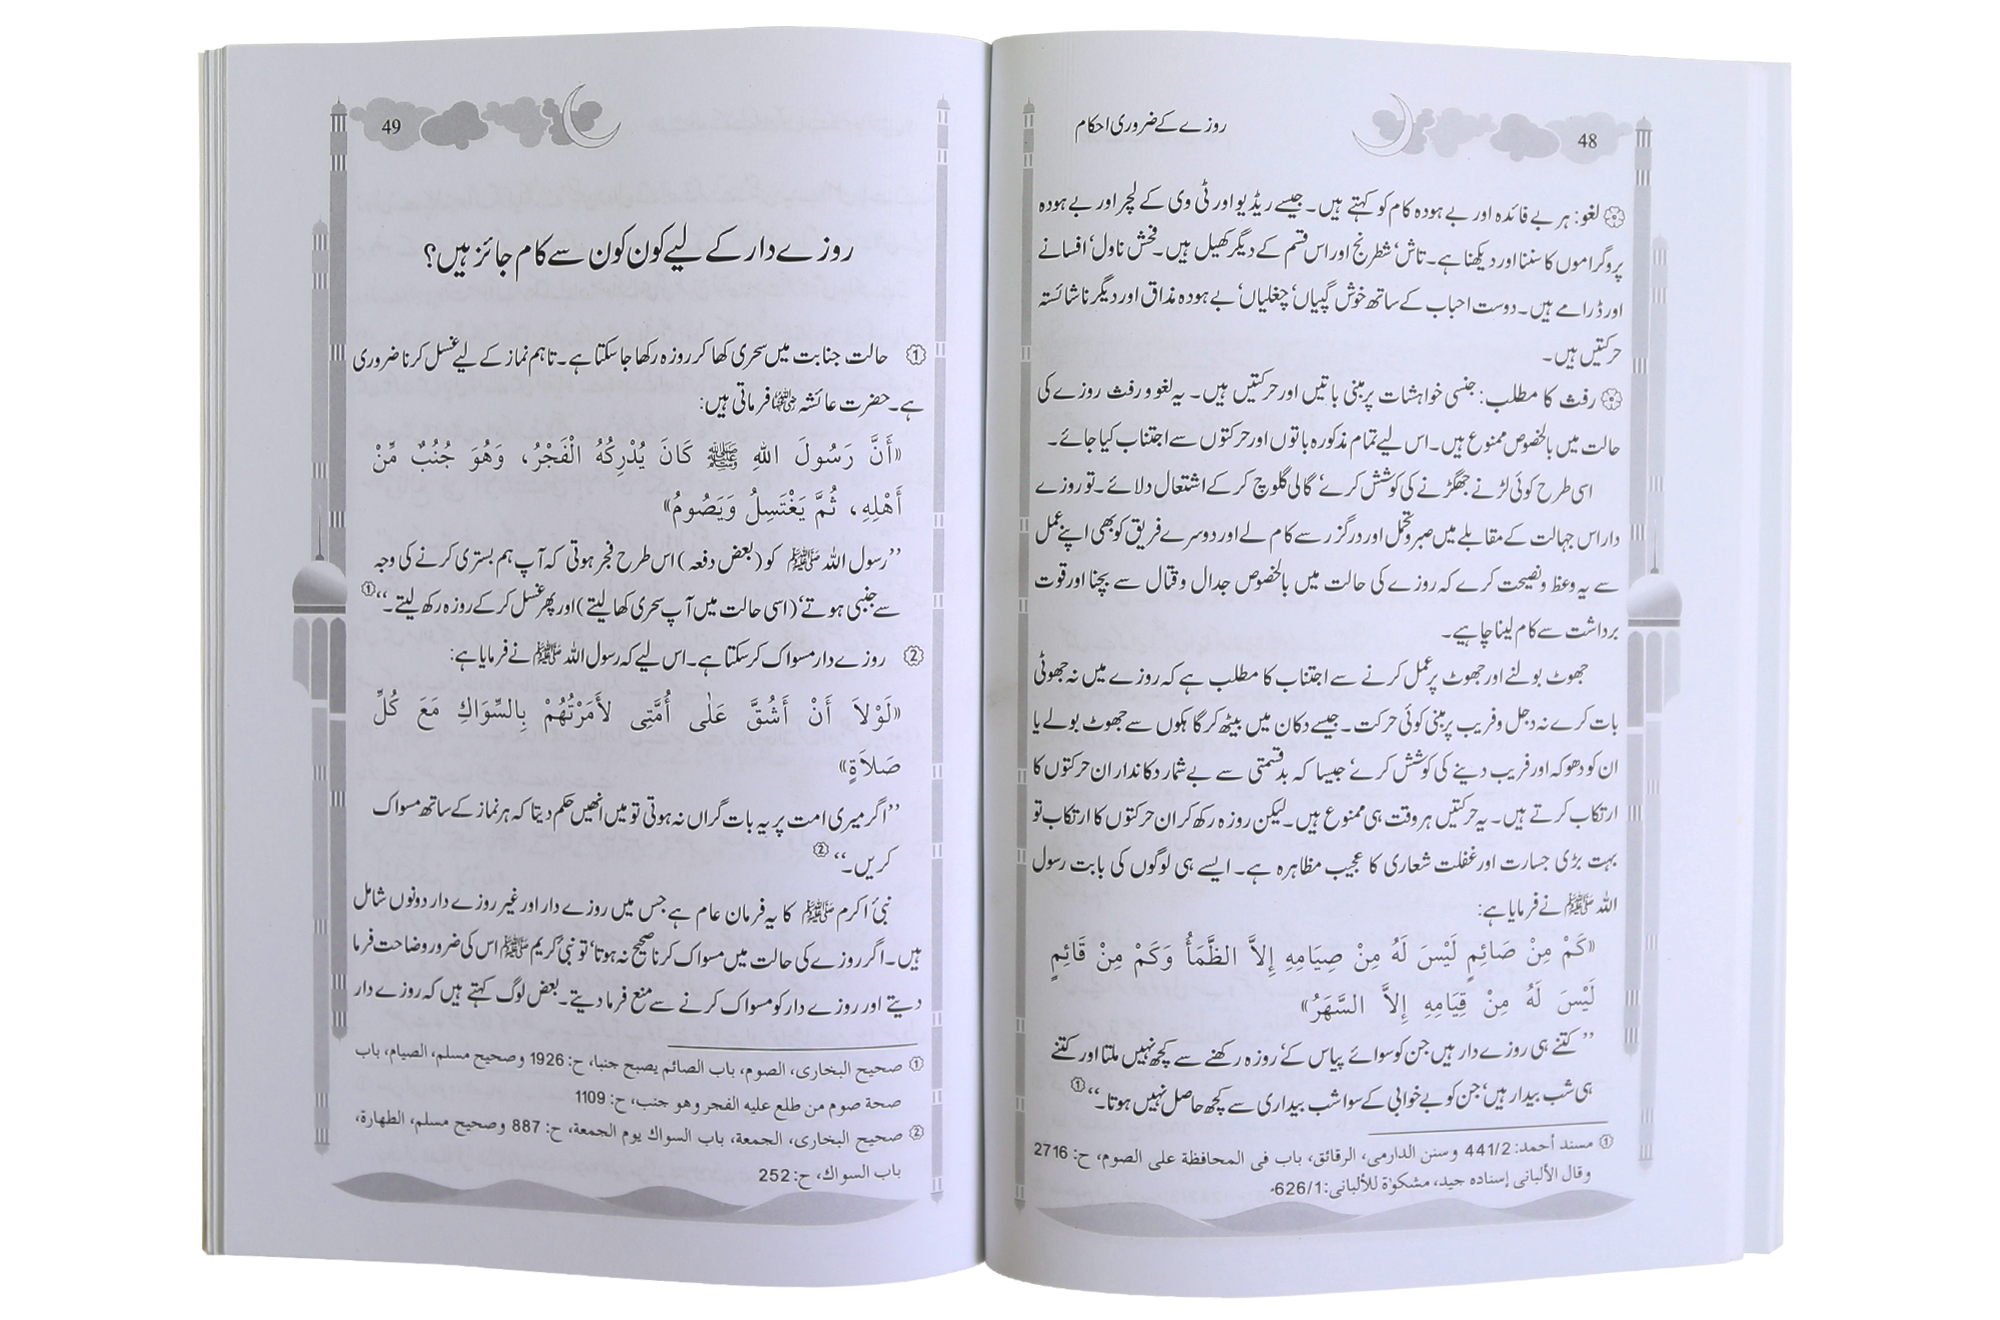 48
روزے کے ضروری احکام
لغو: ہر بے فائدہ اور بے ہودہ کام کو کہتے ہیں۔ جیسے ریڈیو اور ٹی وی کے لچر اور بے ہودہ
پروگراموں کا سننا اور دیکھنا ہے۔ تاش‘ شطرنج اور اس قسم کے دیگر کھیل ہیں۔ فحش ناول‘ افسانے
اور ڈرامے ہیں۔ دوست احباب کے ساتھ خوش گپیاں‘ چغلیاں‘ بے ہودہ مذاق اور دیگر ناشائستہ
حرکتیں ہیں۔
رفث کا مطلب: جنسی خواہشات پر مبنی باتیں اور حرکتیں ہیں۔ یہ لغو و رفث روزے کی
حالت میں بالخصوص ممنوع ہیں۔ اس لیے تمام مذکورہ باتوں اور حرکتوں سے اجتناب کیا جائے۔
اسی طرح کوئی لڑنے جھگڑنے کی کوشش کرے‘ گالی گلوچ کر کے اشتعال دلائے۔ تو روزے
دار اس جہالت کے مقابلے میں صبر و تحمل اور درگزر سے کام لے اور دوسرے فریق کو بھی اپنے عمل
سے یہ وعظ و نصیحت کرے کہ روزے کی حالت میں بالخصوص جدال و قتال سے بچنا اور قوت
برداشت سے کام لینا چاہیے۔
جھوٹ بولنے اور جھوٹ پر عمل کرنے سے اجتناب کا مطلب ہے کہ روزے میں نہ جھوٹی
بات کرے نہ دجل و فریب پر مبنی کوئی حرکت۔ جیسے دکان میں بیٹھ کر گاہکوں سے جھوٹ بولے یا
ان کو دھوکہ اور فریب دینے کی کوشش کرے‘ جیسا کہ بدقسمتی سے بے شمار دکاندار ان حرکتوں کا
ارتکاب کرتے ہیں۔ یہ حرکتیں ہر وقت ہی ممنوع ہیں۔ لیکن روزہ رکھ کر ان حرکتوں کا ارتکاب تو
بہت بڑی جسارت اور غفلت شعاری کا عجیب مظاہرہ ہے۔ ایسے ہی لوگوں کی بابت رسول
اللہ ﷺ نے فرمایا ہے:
«كَمْ مِنْ صَائِمٍ لَيْسَ لَهُ مِنْ صِيَامِهِ إِلاَّ الظَّمَأُ وَكَمْ مِنْ قَائِمٍ
لَيْسَ لَهُ مِنْ قِيَامِهِ إِلاَّ السَّهَرُ»
’’کتنے ہی روزے دار ہیں جن کو سوائے پیاس کے‘ روزہ رکھنے سے کچھ نہیں ملتا اور کتنے
ہی شب بیدار ہیں‘ جن کو بے خوابی کے سوا شب بیداری سے کچھ حاصل نہیں ہوتا۔‘‘ ①
① مسند أحمد: 441/2 وسنن الدارمی، الرقائق، باب فی المحافظة علی الصوم، ح: 2716
وقال الألبانی إسناده جید، مشکوٰة للألبانی: 626/1
49
روزے دار کے لیے کون کون سے کام جائز ہیں؟
① حالت جنابت میں سحری کھا کر روزہ رکھا جا سکتا ہے۔ تاہم نماز کے لیے غسل کرنا ضروری
ہے۔ حضرت عائشہ رضی اللہ عنہا فرماتی ہیں:
«أَنَّ رَسُولَ اللهِ ﷺ كَانَ يُدْرِكُهُ الْفَجْرُ، وَهُوَ جُنُبٌ مِّنْ
أَهْلِهِ، ثُمَّ يَغْتَسِلُ وَيَصُومُ»
’’رسول اللہ ﷺ کو (بعض دفعہ) اس طرح فجر ہوتی کہ آپ ہم بستری کرنے کی وجہ
سے جنبی ہوتے‘ (اسی حالت میں آپ سحری کھا لیتے) اور پھر غسل کر کے روزہ رکھ لیتے۔‘‘ ①
② روزے دار مسواک کر سکتا ہے۔ اس لیے کہ رسول اللہ ﷺ نے فرمایا ہے:
«لَوْلاَ أَنْ أَشُقَّ عَلٰى أُمَّتِى لأَمَرْتُهُمْ بِالسِّوَاكِ مَعَ كُلِّ
صَلاَةٍ»
’’اگر میری امت پر یہ بات گراں نہ ہوتی تو میں انھیں حکم دیتا کہ ہر نماز کے ساتھ مسواک
کریں۔‘‘ ②
نبیٔ اکرم ﷺ کا یہ فرمان عام ہے جس میں روزے دار اور غیر روزے دار دونوں شامل
ہیں۔ اگر روزے کی حالت میں مسواک کرنا صحیح نہ ہوتا‘ تو نبیٔ کریم ﷺ اس کی ضرور وضاحت فرما
دیتے اور روزے دار کو مسواک کرنے سے منع فرما دیتے۔ بعض لوگ کہتے ہیں کہ روزے دار
① صحیح البخاری، الصوم، باب الصائم یصبح جنبا، ح: 1926 وصحیح مسلم، الصیام، باب
صحة صوم من طلع علیه الفجر وهو جنب، ح: 1109
② صحیح البخاری، الجمعة، باب السواك یوم الجمعة، ح: 887 وصحیح مسلم، الطهارة،
باب السواك، ح: 252